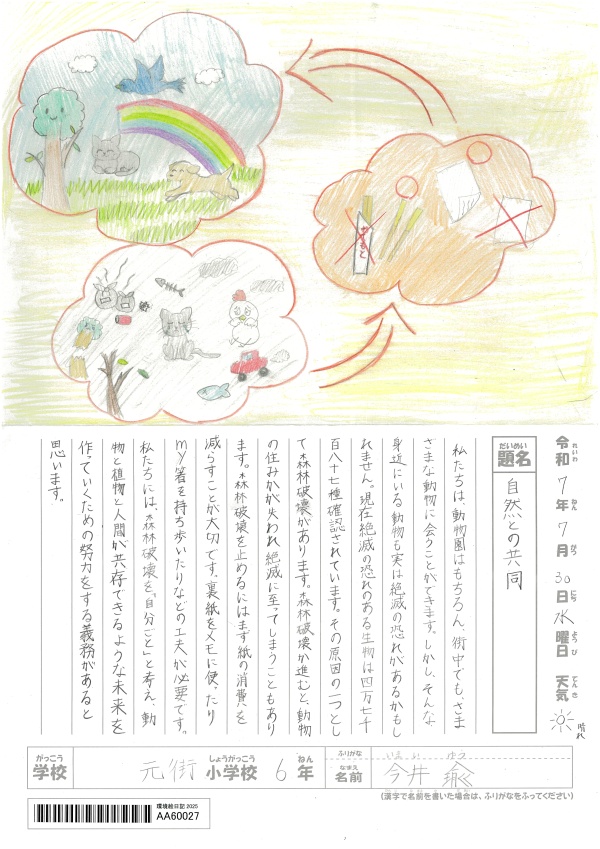 令和7年7月30日水曜日 天気 晴れ
れいわ ねん がつ にち ようび てんき
だいめい
題名 自然との共同
私たちは、動物園はもちろん、街中でも、さま
ざまな動物に会うことができます。しかし、そんな
身近にいる動物も実は絶滅の恐れがあるかもし
れません。現在絶滅の恐れのある生物は四万七千
百八十七種確認されています。その原因の一つとし
て森林破壊があります。森林破壊が進むと、動物
の住みかが失われ絶滅に至ってしまうこともあり
ます。森林破壊を止めるにはまず紙の消費を
減らすことが大切です。裏紙をメモに使ったり
my箸を持ち歩いたりなどの工夫が必要です。
私たちには、森林破壊を「自分ごと」と考え、動
物と植物と人間が共存できるような未来を
作っていくための努力をする義務があると
思います。
がっこう しょうがっこう ねん
学校 元街 小学校 6年
ふりがな いまい
なまえ
名前 今井
(漢字で名前を書いた場合は、ふりがなをふってください)
環境絵日記 2025
AA60027